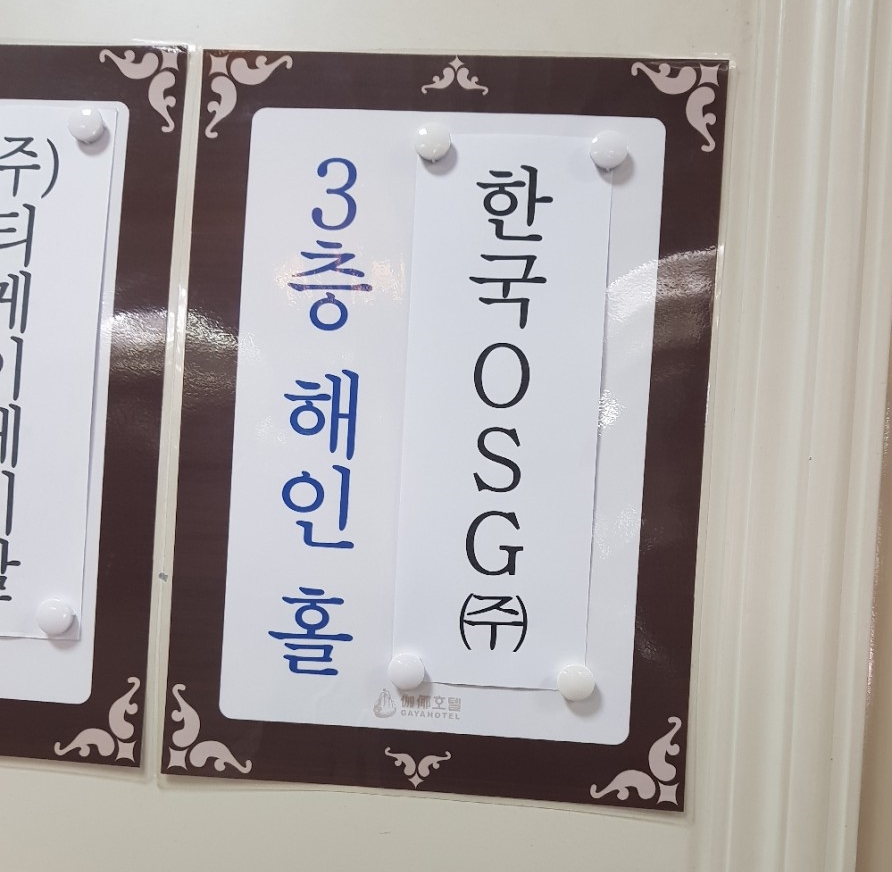 (주)티케이케미칼
3층 해인 홀
한국OSG(주)
伽倻호텔
GAYAHOTEL